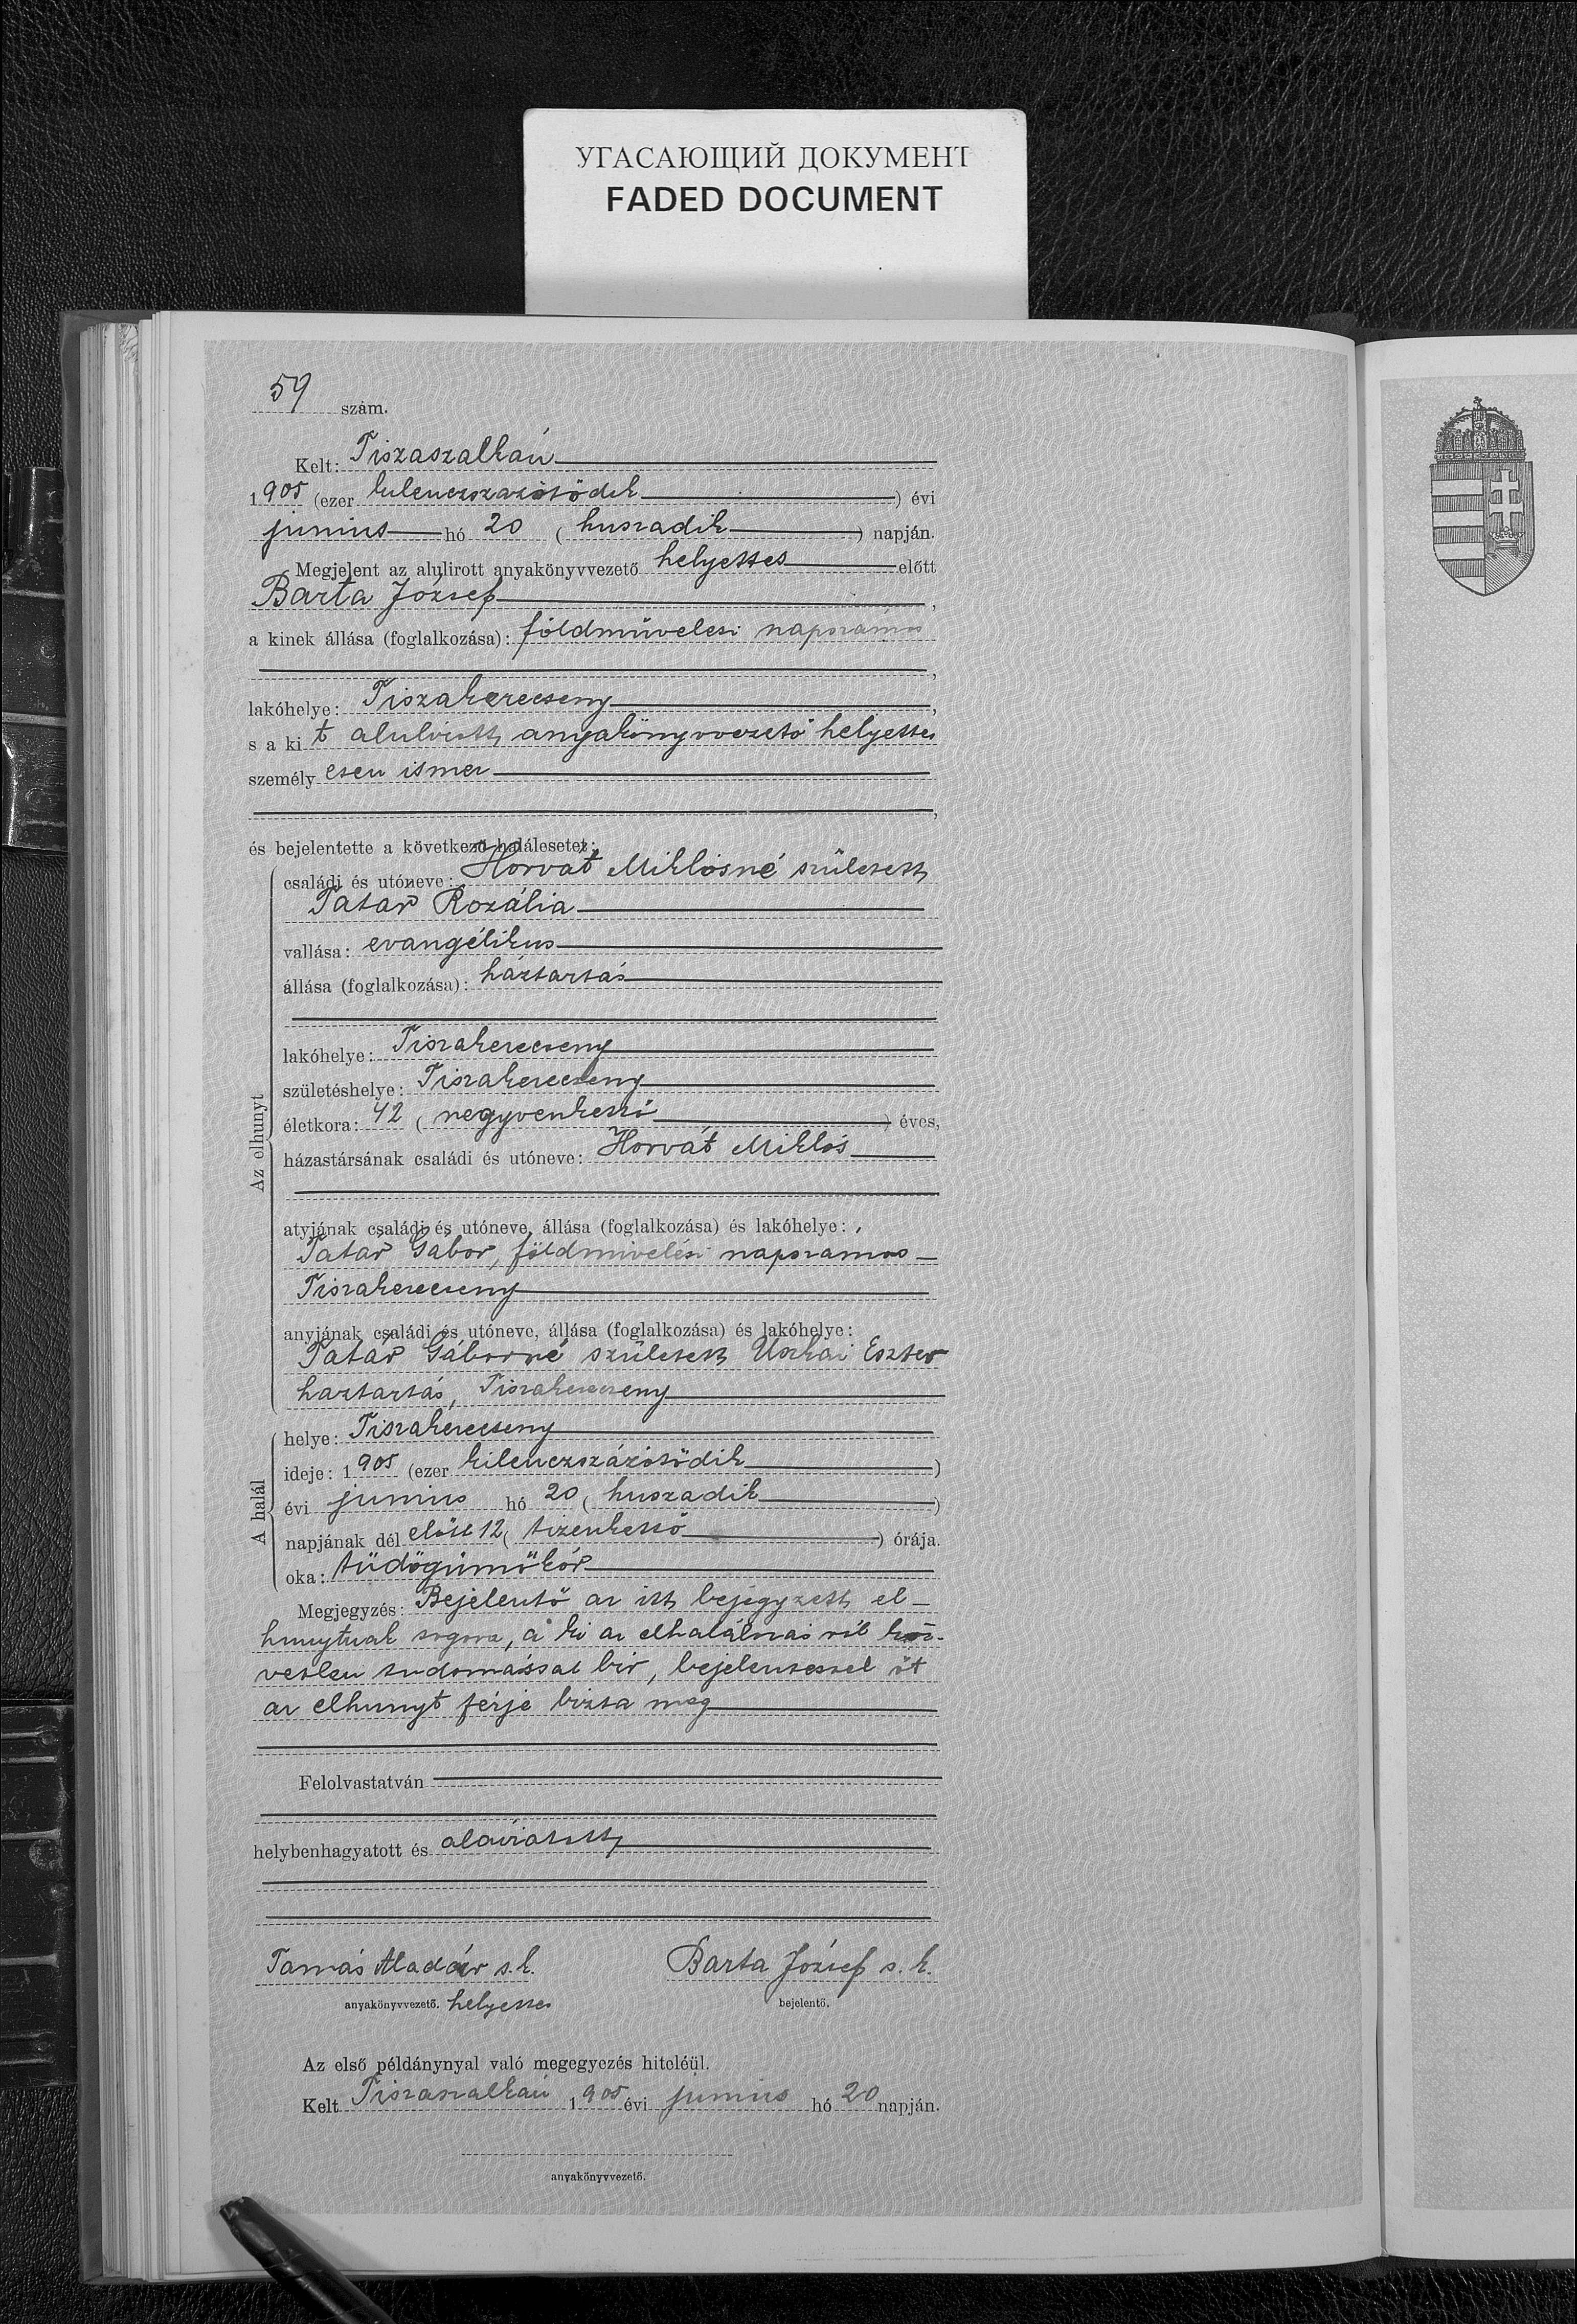 УГАСАЮЩИЙ ДОКУМЕНТ
FADED DOCUMENT
59 szám.
Kelt: Tiszaszalkán
1905 (ezer kilenczszázötödik) évi
junius hó 20 (huszadik) napján.
Megjelent az alulirott anyakönyvvezető helyettes előtt
Barta József,
a kinek állása (foglalkozása): földmüvelesi napszámos
,
lakóhelye: Tiszakerecseny,
s a kit alulirott anyakönyvvezető helyettes
személyesen ismer
,
és bejelentette a következő halálesetet:
családi és utóneve: Horvát Miklósné született
Tatár Rozália
vallása: evangélikus
állása (foglalkozása): háztartás
lakóhelye: Tiszakerecseny
születéshelye: Tiszakerecseny
Az elhunyt
életkora: 42 (negyvenkettő) éves,
házastársának családi és utóneve: Horvát Miklós
atyjának családi és utóneve, állása (foglalkozása) és lakóhelye:
Tatár Gábor, földmivelési napszamos
Tiszakerecseny
anyjának családi és utóneve, állása (foglalkozása) és lakóhelye:
Tatár Gáborné született Uszkai Eszter
haztartás, Tiszakerecseny
helye: Tiszakerecseny
ideje: 1905 (ezer kilenczszázötödik)
A halál
évi junius hó 20 (huszadik)
napjának dél előtt 12 (tizenkettő) órája.
oka: tüdőgümőkór
Megjegyzés: Bejelentő az itt bejegyzett el-
hunytnak sogora, a ki az elhalálozás ról köz-
vetlen tudomással bir, bejelentessel őt
az elhunyt férje bizta meg
Felolvastatván
helybenhagyatott és aláiratott
Tamás Aladár s.k.
Barta József s. k.
anyakönyvvezető. helyettes
bejelentő.
Az első példánynyal való megegyezés hiteléül.
Kelt Tiszaszalkán 1905 évi junius hó 20 napján.
anyakönyvvezető.